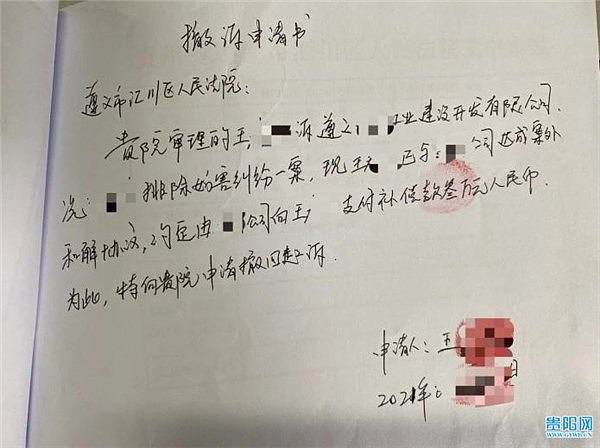 撤诉申请书
遵义市汇川区人民法院:
贵院审理的王 诉遵义 工业建设开发有限公司.
冼 排除妨害纠纷一案,现王 已与 公司达成案外
和解协议,约定由 公司向王 支付补偿款叁万元人民币.
为此,特向贵院申请撤回起诉.
申请人:王
2021年 日
贵阳网
WWW.GYWB.CN